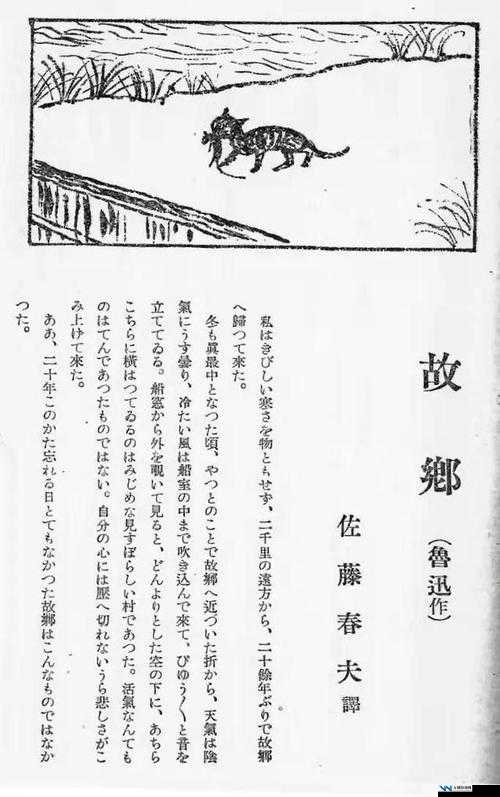 故鄉（魯迅作）
佐藤春夫譯
私はきびしい寒さを物ともせず、二千里の遠方から、二十餘年ぶりで故鄉
へ歸つて來た。
冬も眞最中となつた頃、やつとのことで故鄉へ近づいた折から、天氣は陰
氣にうす曇り、冷たい風は船室の中まで吹き込んで來て、ぴゆう〱と音を
立ててゐる。船窓から外を覗いて見ると、どんよりとした空の下に、あちら
こちらに橫はつてゐるのはみじめな見すぼらしい村であつた。活氣なんても
のはてんであつたものではない。自分の心には壓へ切れないうら悲しさがこ
み上げて來た。
ああ、二十年このかた忘れる日とてもなかつた故鄉はこんなものではなか
つた。